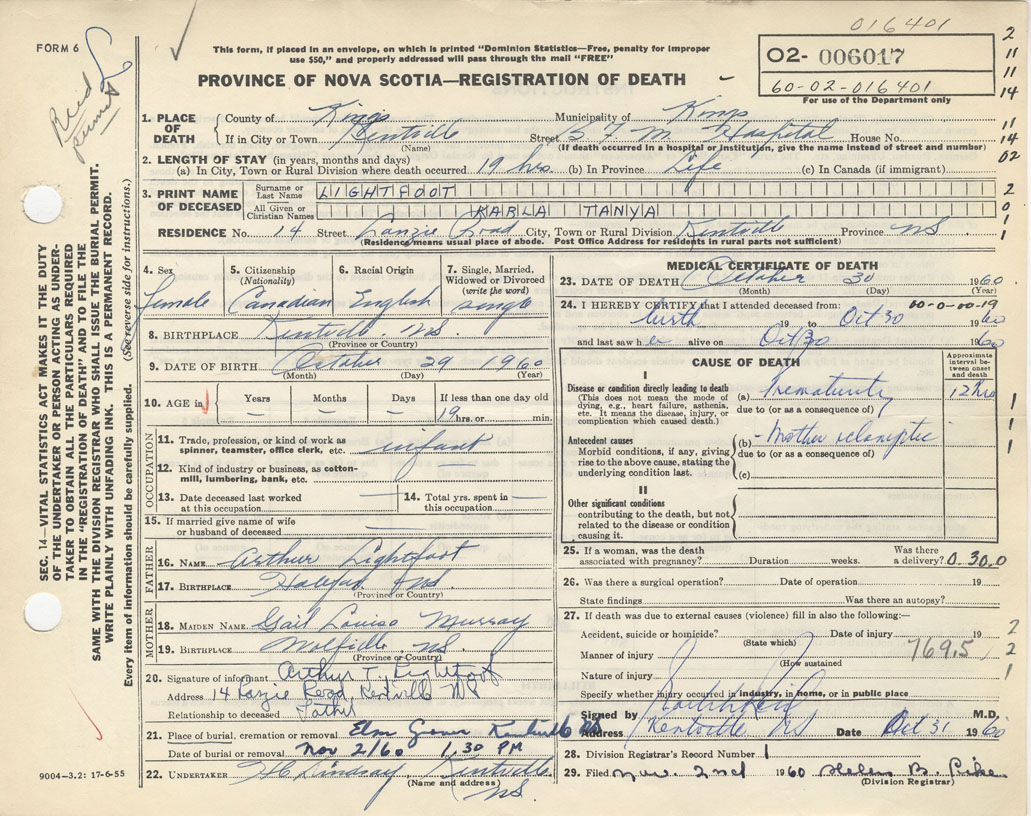 016401
FORM 6
This form, if placed in an envelope, on which is printed "Dominion Statistics—Free, penalty for improper
use $50," and properly addressed will pass through the mail "FREE"
PROVINCE OF NOVA SCOTIA—REGISTRATION OF DEATH
O2- 006017
60-02-016401
For use of the Department only
2
11
11
14
11
14
02
2
0
1
1
permit
SEC. 14—VITAL STATISTICS ACT MAKES IT THE DUTY
OF THE UNDERTAKER OR PERSON ACTING AS UNDER-
TAKER TO OBTAIN ALL THE PARTICULARS REQUIRED
IN THE "REGISTRATION OF DEATH" AND TO FILE THE
SAME WITH THE DIVISION REGISTRAR WHO SHALL ISSUE THE BURIAL PERMIT.
WRITE PLAINLY WITH UNFADING INK. THIS IS A PERMANENT RECORD.
Every item of information should be carefully supplied. (See reverse side for instructions.)
1. PLACE OF DEATH
County of Kings Municipality of Kings
If in City or Town Kentville Street B.F.M. Hospital House No.
(Name) (If death occurred in a hospital or institution, give the name instead of street and number)
2. LENGTH OF STAY (in years, months and days)
(a) In City, Town or Rural Division where death occurred 19 hrs. (b) In Province Life (c) In Canada (if immigrant)
3. PRINT NAME OF DECEASED
Surname or Last Name LIGHTFOOT
All Given or Christian Names KARLA TANYA
RESIDENCE No. 14 Street Road City, Town or Rural Division Kentville Province NS
(Residence means usual place of abode. Post Office Address for residents in rural parts not sufficient)
4. Sex
Female
5. Citizenship
(Nationality)
Canadian
6. Racial Origin
English
7. Single, Married, Widowed or Divorced
(write the word)
single
8. BIRTHPLACE Kentville NS
(Province or Country)
9. DATE OF BIRTH October 29 1960
(Month) (Day) (Year)
10. AGE in
Years Months Days If less than one day old
— — — 19 hrs. or min.
OCCUPATION
11. Trade, profession, or kind of work as
spinner, teamster, office clerk, etc. infant
12. Kind of industry or business, as cotton-
mill, lumbering, bank, etc. —
13. Date deceased last worked
at this occupation —
14. Total yrs. spent in
this occupation —
15. If married give name of wife
or husband of deceased —
FATHER
16. NAME Arthur Lightfoot
17. BIRTHPLACE Halifax NS
(Province or Country)
MOTHER
18. MAIDEN NAME Gail Louise Murray
19. BIRTHPLACE Wolfville NS
(Province or Country)
20. Signature of informant Arthur T. Lightfoot
Address 14 Road, Kentville NS
Relationship to deceased Father
21. Place of burial, cremation or removal Elm Grove Kentville NS
Date of burial or removal Nov 2/60 1.30 PM
22. UNDERTAKER Lindsay Kentville
(Name and address)
NS.
9004—3.2: 17-6-55
MEDICAL CERTIFICATE OF DEATH
23. DATE OF DEATH October 30 1960
(Month) (Day) (Year)
24. I HEREBY CERTIFY that I attended deceased from: 00-0-00-19
birth 19 to Oct 30 1960
and last saw her alive on Oct 30 1960
CAUSE OF DEATH
Approximate interval between onset and death
I
Disease or condition directly leading to death
(This does not mean the mode of
dying, e.g., heart failure, asthenia,
etc. It means the disease, injury, or
complication which caused death.)
(a) Prematurity 12 hrs
due to (or as a consequence of)
Antecedent causes
Morbid conditions, if any, giving
rise to the above cause, stating the
underlying condition last.
(b) Mother eclamptic
due to (or as a consequence of)
(c)
II
Other significant conditions
contributing to the death, but not
related to the disease or condition
causing it.
1
1
1
1
25. If a woman, was the death
associated with pregnancy? Duration weeks. Was there
a delivery? 0.30.0
26. Was there a surgical operation? Date of operation 19
State findings Was there an autopsy?
27. If death was due to external causes (violence) fill in also the following:—
Accident, suicide or homicide? Date of injury 19
(State which)
Manner of injury 769.5
(How sustained
Nature of injury
Specify whether injury occurred in industry, in home, or in public place
2
2
1
Signed by M.D.
Address Kentville NS Date Oct 31 1960
28. Division Registrar's Record Number 1
29. Filed Nov. 2nd 1960 Helen B. Pike
(Division Registrar)